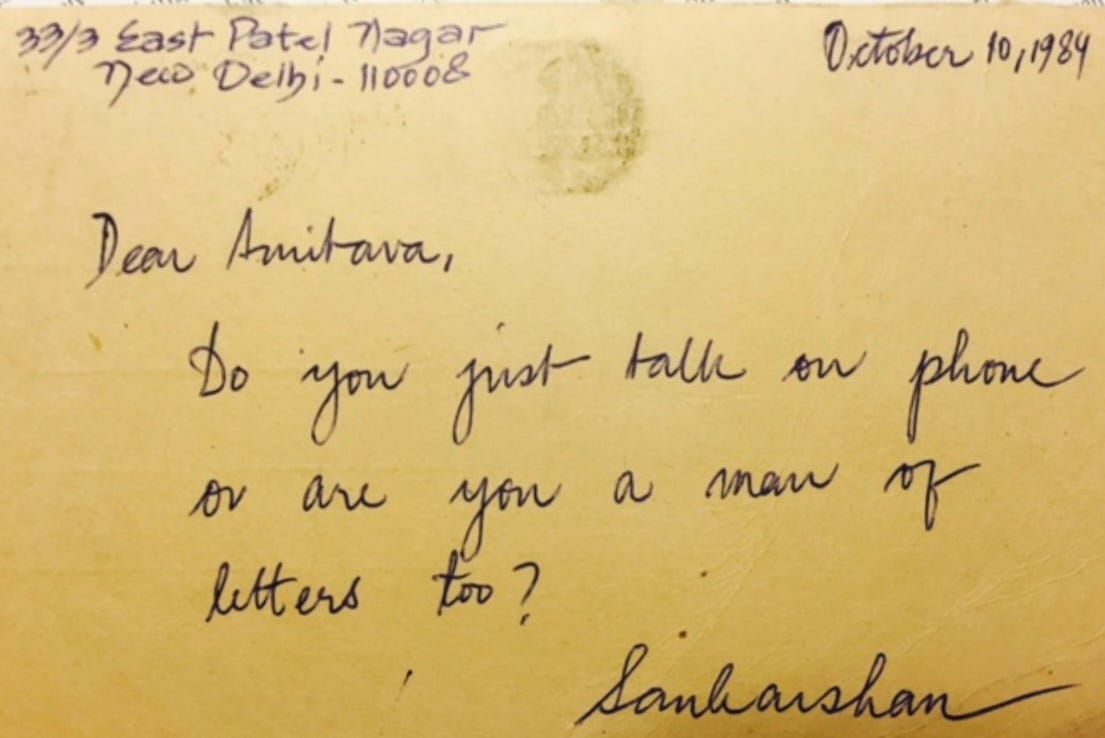 33/3 East Patel Nagar
New Delhi - 110008
October 10, 1984
Dear Amitava,
Do you just talk on phone
or are you a man of
letters too?
Sankarshan